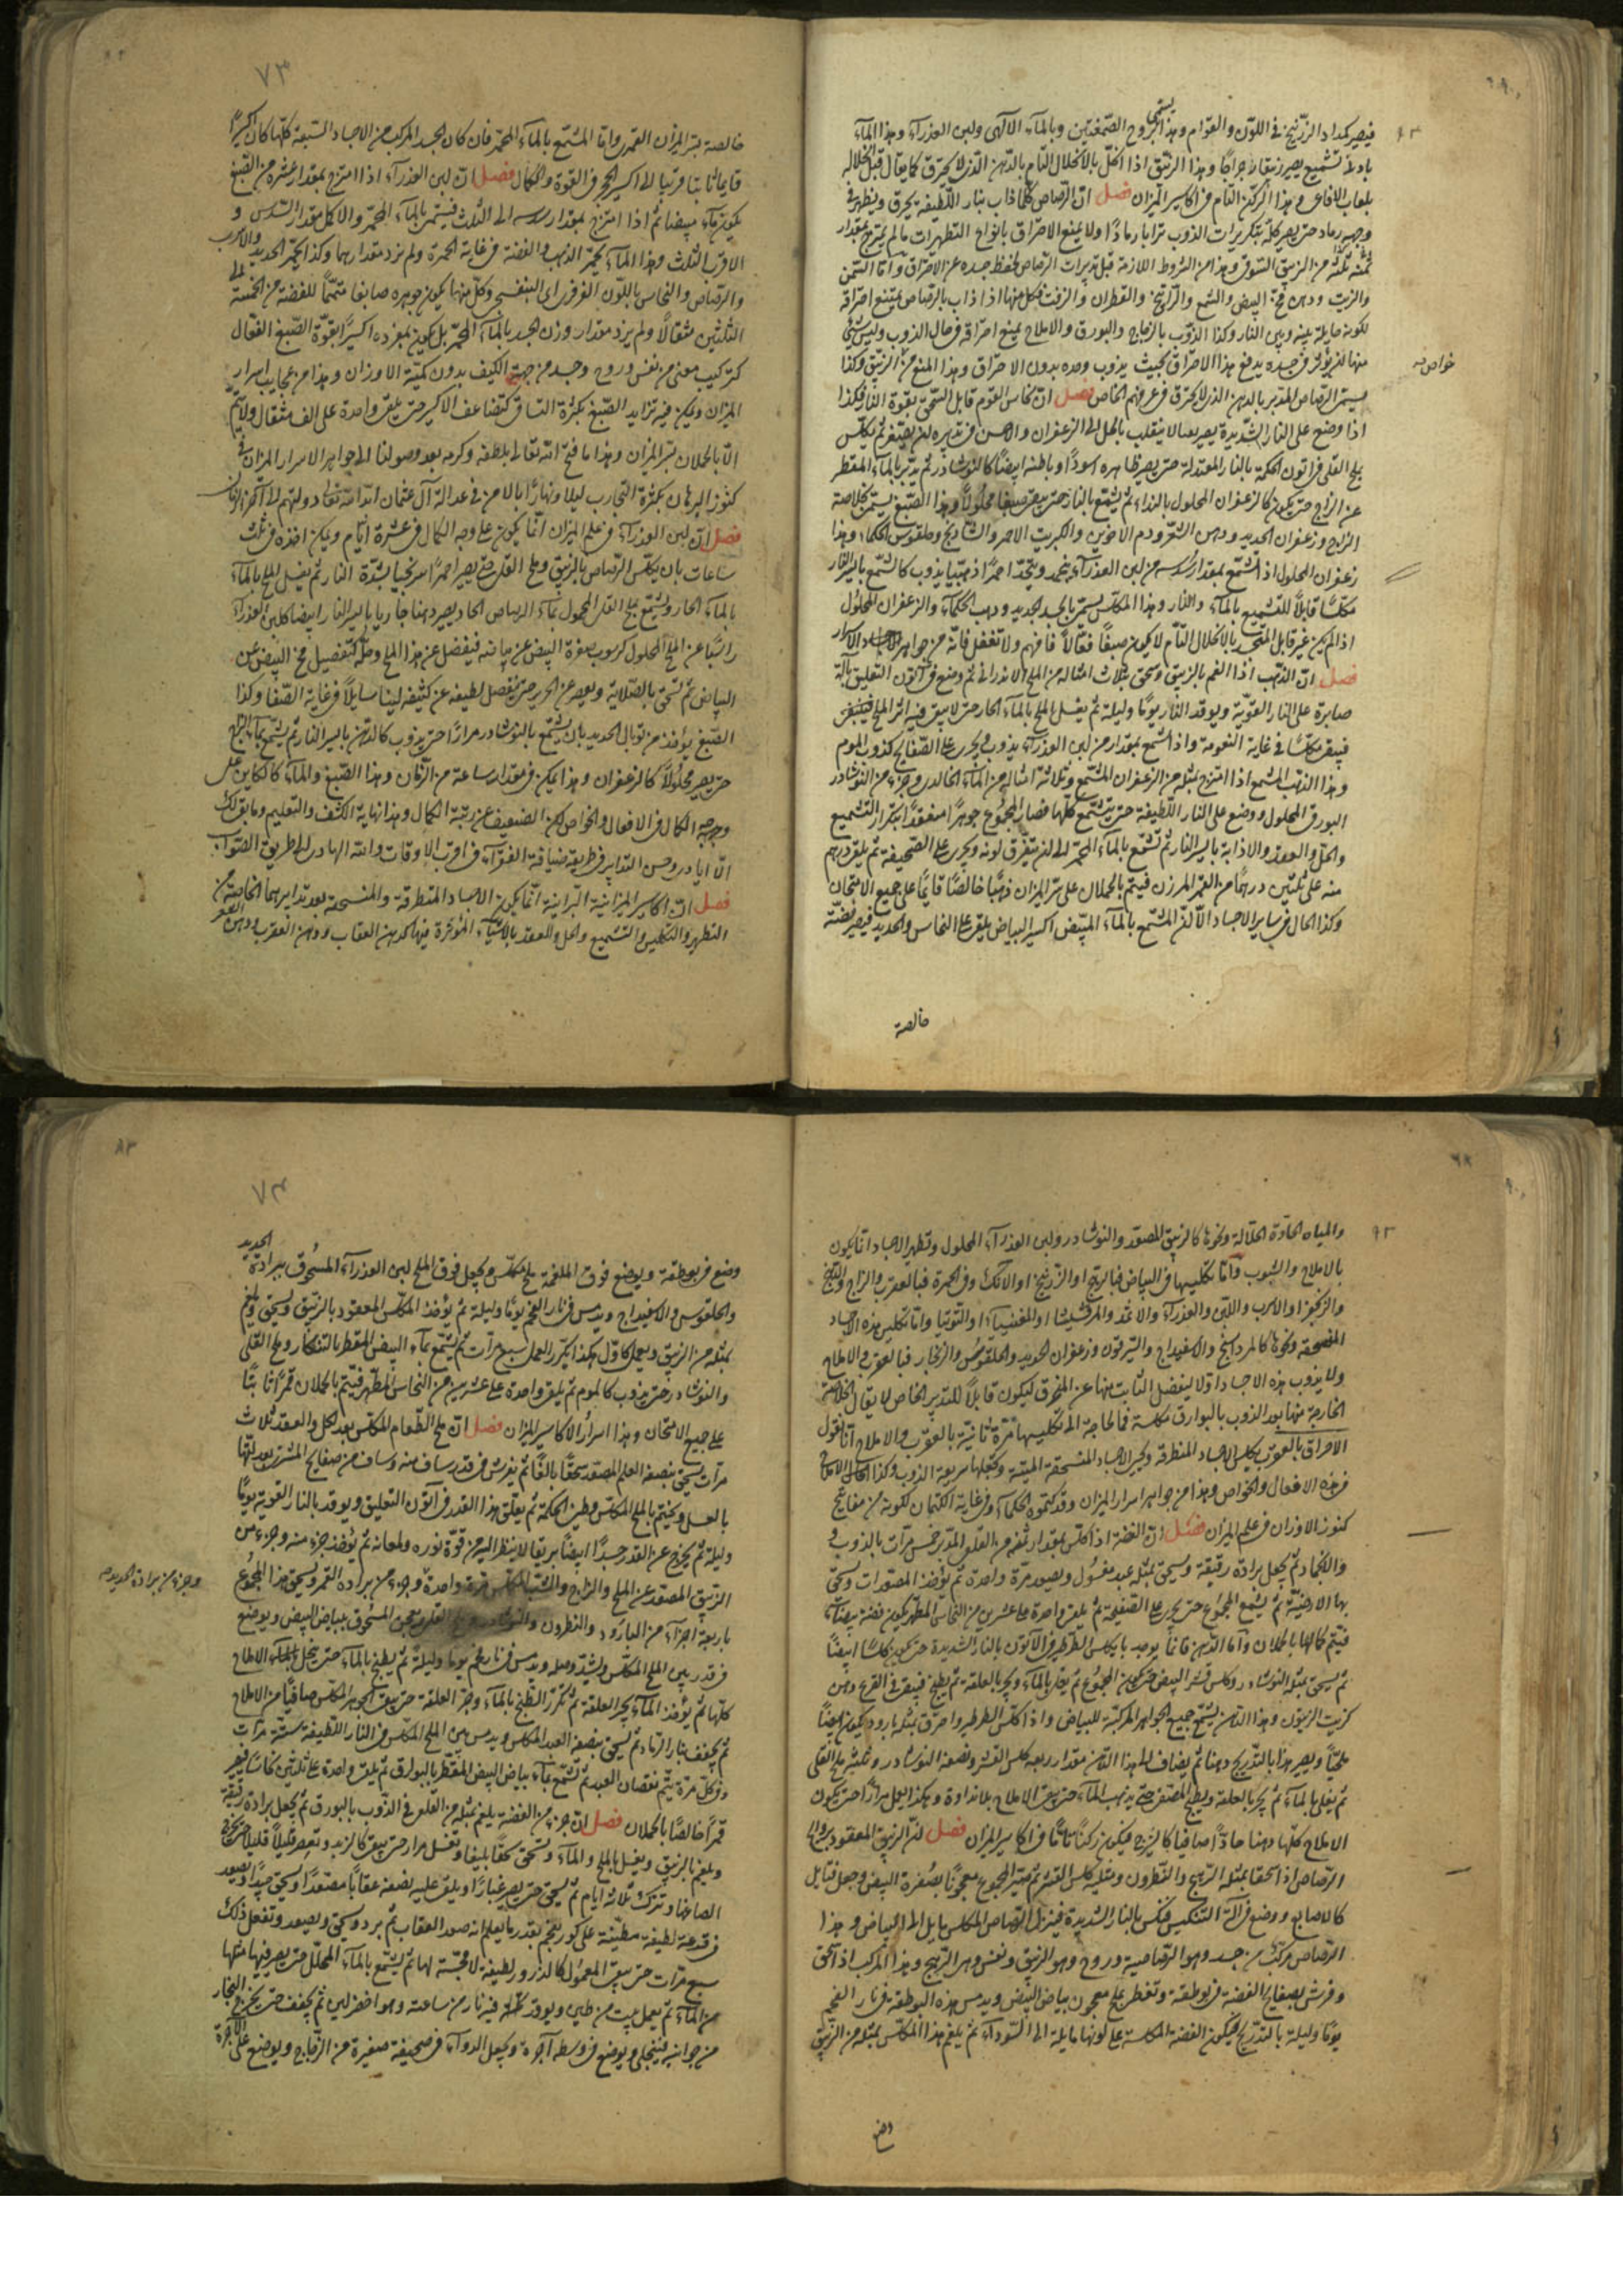 فيصير كمداد الزرنيخ فى اللون والقوام وهذا يسمى بروح الصمغتين وبالماء الالهى ولبن العذراء وهذا الماء
بادنى تشميع يصير زيبقا رجراجا وهذا الزئبق اذا انحل بالانحلال التام بالدهن الذى لا يحترق كما يقال قبل انحلاله
بلعاب الافاعى وهذا الركن التام فى اكاسير الميزان فصل ان الرصاص كلما ذاب بنار اللطيفة يحرق ويظهر فى
وجهه رماد حتى يصير كله بتكريرات الذوب ترابا رمادا ولا يمنع الاحتراق بانواع التطهيرات ما لم يمتزج بمقدار
ثمنه من الزيبق السوقى وهذا من الشروط اللازمة قبل تدبيرات الرصاص لحفظ جسده عن الاحتراق واما السمن
والزيت ودهن مح البيض والشمع والراتنج والقطران والزفت فكل منها اذا ذاب بالرصاص يمتنع احتراقه
لكونه حايلة بينه وبين النار وكذا الذوب بالزجاج والبورق والاملاح يمنع احتراقه فى حال الذوب وليس شئ
منها للتاثير فى جسده يدفع هذا الاحتراق بحيث يذوب وحده بدون الاحتراق وهذا المنع من الزيبق وكذا
خواصه
يسمى الرصاص المدبر بالدهن الذى لا يحترق فى عرفهم الخاص فصل ان نحاس القوم قابل السحق بقوة النار فكذا
اذا وضع على النار الشديدة
بملح القلى فى اتون الحكمة بالنار المعتدلة حتى يصير ظاهره اسودا وباطنه ابيضا كالنوشادر ثم يدبر بالماء المقطر
عن الزاج حتى يكون كالزعفران المحلول بالنداء ثم يشمع بالنار حتى يبقى صبغا محلولا وهذا الصبغ يسمى بخلاصة
الزاج وزعفران الحديد ودهن الشعر ودم الاخوين والكبريت الاحمر والشاذنج وملقوس الحكماء وهذا
زعفران المحلول اذا شمع بمقدار سدسه من لبن العذراء ينجمد ويتحد احمرا ذهبيا يذوب كالشمع بايسر النار
مكلسا قابلا للتشميع بالماء والنار وهذا المكلس يسمى بالجسد الجديد وذهب الحكماء والزعفران المحلول
اذا لم يكن غير قابل المتحد بالانحلال التام لا يكون صبغا فعالا فافهم ولا تغفل فانه من جواهر الاسرار
فصل ان الذهب اذا الغم بالزيبق وسحق بثلاث امثاله من الملح الاندرانى ثم وضع فى اتون التعليق بآلة
صابرة على النار القوية ويوقد النار يوما وليلة ثم يغسل الملح بالماء الحار حتى لا يبقى فيه اثر الملح
فيبقى مكلسا فى غاية النعومة واذا شمع بمقدار من لبن العذراء يذوب ويجرى على الصفايح كذوب الموم
وهذا الذهب المشمع اذا امتزج بمثله من الزعفران المشمع وثلاثة امثال من الماء الخالدى وجزء من النوشادر
البورقى المحلول ووضع على النار اللطيفة حتى يتشمع كلها فصار المجموع جوهرا منعقدا بتكرار التشميع
والحل والعقد والاذابة بايسر النار ثم تشمع بالماء المحمر الى ان يتفرق لونه ويجرى على الصحيفة ثم يلقى درهم
منه على ثلثين درهما من القمر المرزن فيتم بالحملان على سر الميزان ذهبا خالصا قايما على جميع الامتحان
وكذا الحال فى ساير الاجساد الا ان المشمع بالماء المبيض اكسير البياض يلقى على النحاس والحديد فيصير فضة
خالصة
٧٣
خالصة بسر الميزان القمرى واما المشمع بالماء المحمر فان كان الجسد المركب من الاجساد السبعة كلها كان اكسيرا
قايما ثابتا قريبا الى اكسير الحجر فى القوة والكمال فصل ان لبن العذراء اذا امتزج بمقدار عشره من الصبغ
يكون ماء مبيضا ثم اذا امتزج بمقدار سدسه الى الثلث فيسمى بالماء المحمر والاكمل مقدار السدس و
الاقرب الثلث وهذا الماء يحمر الذهب والفضة فى غاية الحمرة ولم يزد مقدارهما وكذا يحمر الحديد والاسرب
والرصاص والنحاس باللون الفرفرى اى البنفسجى وكل منها يكون جوهره صابغا متمما للفضة من الخمسة الى
الثلثين مثقالا ولم يزد مقدار وزن الجسد بالماء المحمر بل يكون بمفرده اكسيرا بقوة الصبغ الفعال
كتركيب معنى من نفس وروح وجسد من جهة الكيف بدون كمية الاوزان وهذا من عجايب اسرار
الميزان ويمكن فيه تزايد الصبغ بكثرة التساقى كتضاعف الاكسير حتى يلقى واحدة على الف مثقال ولا يتم
الا بالحملان بسر الميزان وهذا ما فتح الله تعالى بلطفه وكرمه بعد وصولنا الى جواهر الاسرار الميزان فى
كنوز البرهان بكثرة التجارب ليلا ونهارا بالامن فى عدالة آل عثمان ابد الله تعالى دولتهم الى آخر الزمان
فصل ان لبن العذراء فى علم الميزان انما يكون على وجه الكمال فى عشرة ايام ويمكن اخذه فى ثلث
ساعات بان يكلس الرصاص بالزيبق وملح القلى حتى يصير احمرا سرنجيا بشدة النار ثم يغسل الملح بالماء
بالماء الحار ويشمع بملح القلى المحمول بماء الرصاص الحاد يصير دهنا جاريا بايسر النار ابيضا كلبن العذراء
راسبا عن الملح المحلول كرسوب صفرة البيض عن بياضه فيفصل عن هذا الملح وحله كتفصيل مح البيض عن
البياض ثم تسحق بالصلاية ويعصر عن الحرير حتى ينفصل لطيفه عن كثيفه لينا سايلا فى غاية الصفا وكذا
الصبغ يؤخذ من توبال الحديد بان يشمع بالنوشادر مرارا حتى يذوب كالدهن بايسر النار ثم يشمع بماء الزاج
حتى يصير محلولا كالزعفران وهذا يمكن فى مقدار ساعة من الزمان وهذا الصبغ والماء كالكاين على
وجه الكمال فى الافعال والخواص لكن الضعيف عن رتبة الكمال وهذا نهاية الكشف والتعليم وما بقى لك
الا ايادى وحسن التدابير فى طريقة ضيافة الفقراء فى اقرب الاوقات والله الهادى الى طريق الصواب
فصل ان اكاسير الميزانية البرانية انما يكون الاجساد المتطرقة والمنسحقة بعد تدابيرهما الخاصة من
التطهير والتكليس والتشميع والحل والعقد بالاشياء المؤثرة فيها كدهن العقاب ودهن العقرب ودهن الصفر
والمياه الحادة الحلالة ونحوها كالزيبق المصعد والنوشادر ولبن العذراء المحلول وتطهير الاجساد انما يكون
بالاملاح والشبوب واما تكليسها فى البياض فبالرهج او الزرنيخ او الآنك وفى الحمرة فبالعقرب والزاج
والزنجفر او الاسرب واللبن والعذراء والاثمد والمرقشيشا او المغنيسيا او التوتيا واما تكليس هذه الاجساد
المنسحقة ونحوها كالمرداسنج والاسفيداج والسريقون وزعفران الحديد والحلقوس والزنجار فبالعقرب والاملاح
ولا يذوب هذه الاجساد اولا لينفصل الثابت منها عن المحترق ليكون قابلا للتدبير الخاص
الخارجة منها بعد الذوب بالبوارق مكلسة فما الحاجة الى تكليسها مرة ثانية بالعقرب والاملاح انا نقول
الاحراق بالعقرب يكلس الاجساد المتطرقة ويحيى الاجساد المنسحقة الميتة ويجعلها سريعة الذوب وكذا
فى هذه الافعال والخواص وهذا من جواهر اسرار الميزان وقد كتموه الحكماء فى غاية الكتمان لكونه من مفاتيح
كنوز الاوزان فى علم الميزان فصل ان الفضة اذا كلس بمقدار ثمنه من القلعى المدبر خمس مرات بالذوب و
والانجماد ثم يجعل برادة رقيقة ويسحق بمثله عبد مغسول ويصعد مرة واحدة ثم يؤخذ المصعدات ويسحق
بها الارضية ثم يشمع المجموع حتى يجرى على الصفيحة ثم يلقى واحدة على عشرين من النحاس المطهر يكون فضة بيضاء
فيتم كمالها بالحملان واما الدهن فانما يوجد بان يكلس الطرطير فى الآتون بالنار الشديدة حتى يكون كلسا ابيضا
ثم يسحق بمثله النوشادر وكلس قشر البيض حتى يكون المجموع ثم يغلى بالماء ويجر بالعلقة ثم يطبخ فيبقى فى القرع دهن
كزيت الزيتون وهذا الدهن يشمع جميع الجواهر المركبة للبياض واذا كلس الطرطير واحرق بمثله بارود يكون ابيضا
ملحيا ويصير هذا بالتدريج دهنا ثم يضاف الى هذا الدهن مقدار ربعه كلس القشر ونصفه النوشادر وثلثه ملح القلى
ثم يغلى بالماء ثم يجر بالعلقة ويطبخ المصفى حتى يذهب الماء حتى يبقى الاملاح بلا نداوة وهكذا يعمل مرارا حتى يكون
الاملاح كلها دهنا حادا صافيا كالزيت فيكون ركنا تاما فى اكاسير الميزان فصل ان الزيبق المعقود برايحة
الرصاص اذا سحقا بمثله الرهج والنطرون ومثله كلس القشر ثم يصير المجموع معجونا بصفرة البيض وجعل فتايل
كالاصابع ووضع فى آلة التنكيس فنكس بالنار الشديدة فينزل الرصاص المكلس مايل الى البياض وهذا
الرصاص مركب من جسد وهو الرصاصية وروح وهو الزيبق ونفس وهى الرهج وهذا المركب اذا سحق
وفرش بصفايح الفضة فى بوطقة وتغطى بملح معجون ببياض البيض ويدمس هذه البوطقة فى نار الفحم
يوما وليلة بالتدريج فيكون الفضة المكلسة على لونها مايلة الى السوداء ثم يلغم هذا المكلس بمثله من الزيبق
وضع
٧٤
وضع فى بوطقة ويوضع فوق الملغمة ملح مكلس ويجعل فوق الملح لبن العذراء المسحوق ببرادة الحديد
والحلقوس والاسفيداج ويدمس فى نار الفحم يوما وليلة ثم يؤخذ المكلس المعقود بالزيبق ويسحق ويلغم
بمثله من الزيبق ويعمل كاول هكذا يكرر العمل سبع مرات ثم يشمع بماء البيض المقطر بالتنكار وملح القلى
والنوشادر حتى يذوب كالموم ثم يلقى واحدة على عشرين من النحاس المطهر فيتم بالحملان قمرا ثابتا
على جميع الامتحان وهذا اسرار الاكاسير الميزان فصل ان ملح الطعام المكلس بعد الحل والعقد ثلاث
مرات يسحق بنصفه العلم المصعد سحقا بالغا ثم يفرش فى قدر ساف منه وساف من صفايح المشترى بعد لتها
بالعسل ويختم بالملح المكلس وطين الحكمة ثم يعلق هذا القدر فى آتون التعليق ويوقد بالنار القوية يوما
وليلة ثم يخرج عن القدر جسدا ابيضا بريقا لا ينظر اليه من قوة نوره ولمعانه ثم يؤخذ جزء منه وجزء من
الزيبق المصعد عن الملح والزاج والشب المكلس مرة واحدة وجزء من برادة القمر ويسحق هذا المجموع
وجزء من برادة الحديد صح
باربعة اجزاء من البارود والنطرون والنوشادر وملح القلى ويعجن المسحوق ببياض البيض ويوضع
فى قدر بين الملح المكلس ويشد وصله ويدمس فى نار فحم يوما وليلة ثم يطبخ بالماء حتى ينحل الاملاح
كلها ثم يؤخذ الماء بجر العلقة ثم تكرر الطبخ بالماء وجر العلقة حتى يبقى الجوهر المكلس صافيا من الاملاح
ثم يجفف بنار الرماد ثم يسحق بنصفه العبد المكلس ويدمس بين الملح المكلس فى النار اللطيفة ستة مرات
وفى كل مرة يتم نقصان العبد ثم تشمع بماء بياض البيض المقطر بالبوارق ثم يلقى واحدة على ثلثين نحاسا يصير
قمرا خالصا بالحملان فصل ان جزء من الفضة يلغم بمثله من القلعى فى الذوب بالبورق ثم يجعل برادة رقيقة
ويلغم بالزيبق ويغسل بالملح والماء ويسحق سحقا بليغا وتغسل مرارا حتى يبقى كالزبد وتعصر قليلا قليلا
الصافا وتترك ثلاثة ايام ثم يسحق حتى يصير غبارا ويلقى عليه نصفه عقابا مصعدا ويسحق جيدا ويصعد
فى قرعة لطيفة مطينة على كور بفحم بقدر ما يعلم انه صعد العقاب ثم برد وسحق ويصعد وتفعل ذلك
سبع مرات حتى يبقى المعمول كالذرور لطيفة لا مجسة لها ثم يشمع بالماء المحلل حتى يصير فيها مثلها
من الماء ثم يعمل بيت من طين ويوقد فيه نار من ساعته وهو اخضر لين ثم يجفف حتى يخرج البخار
من جوانبه فينجلى ويوضع فى وسطه آجرة ويجعل الدواء فى صحيفة صغيرة من الزجاج ويوضع على الآجرة